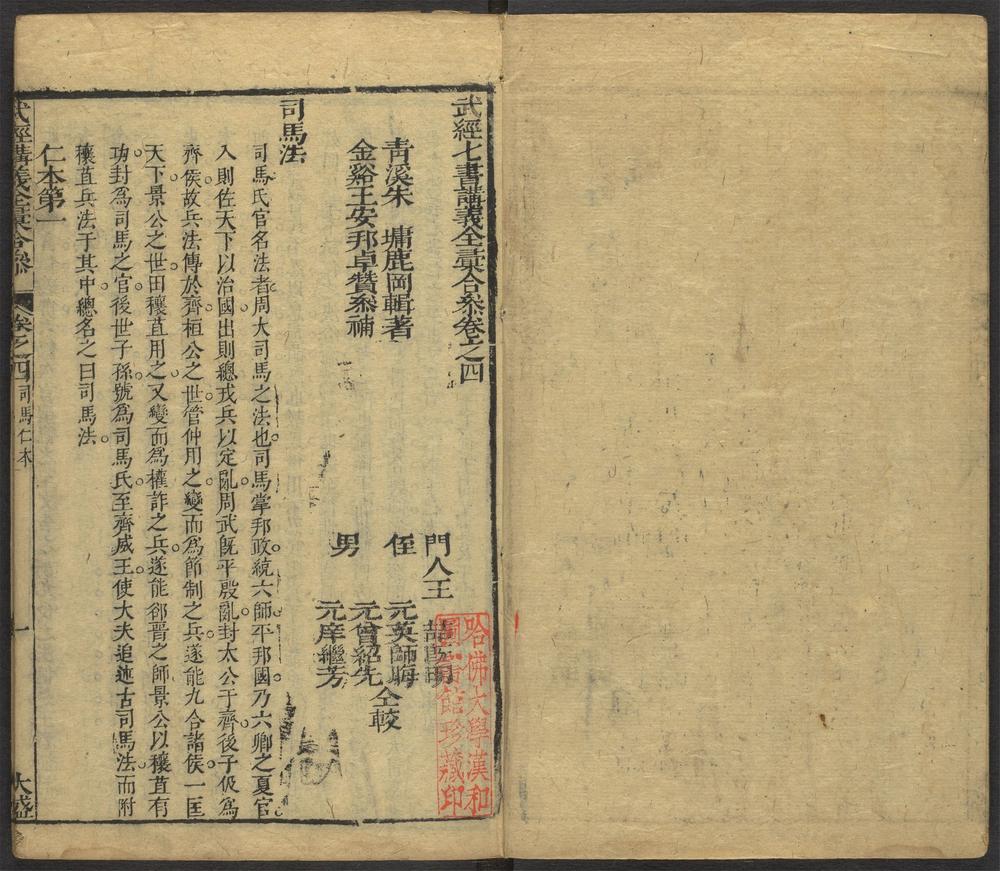 武經七書講義全彚合叅卷之四
青溪朱 墉鹿岡輯著
金谿王安邦卓贊叅補
門人王
侄 元英師晦
元曾紹先
男 元庠繼芳
仝較
哈佛大學漢和
圖書館珍藏印
司馬法
司馬氏官名法者周大司馬之法也司馬掌邦政統六師平邦國乃六卿之夏官
入則佐天下以治國出則總戎兵以定亂周武旣平殷亂封太公于齊後子伋爲
齊侯故兵法傳於齊桓公之世管仲用之變而爲節制之兵遂能九合諸侯一匡
天下景公之世田穰苴用之又變而爲權詐之兵遂能郤晉之師景公以穰苴有
功封爲司馬之官後世子孫號爲司馬氏至齊威王使大夫追述古司馬法而附
穰苴兵法于其中總名之曰司馬法
仁本第一
武經講義全彚合叅
卷之四
司馬仁本
一
大盛